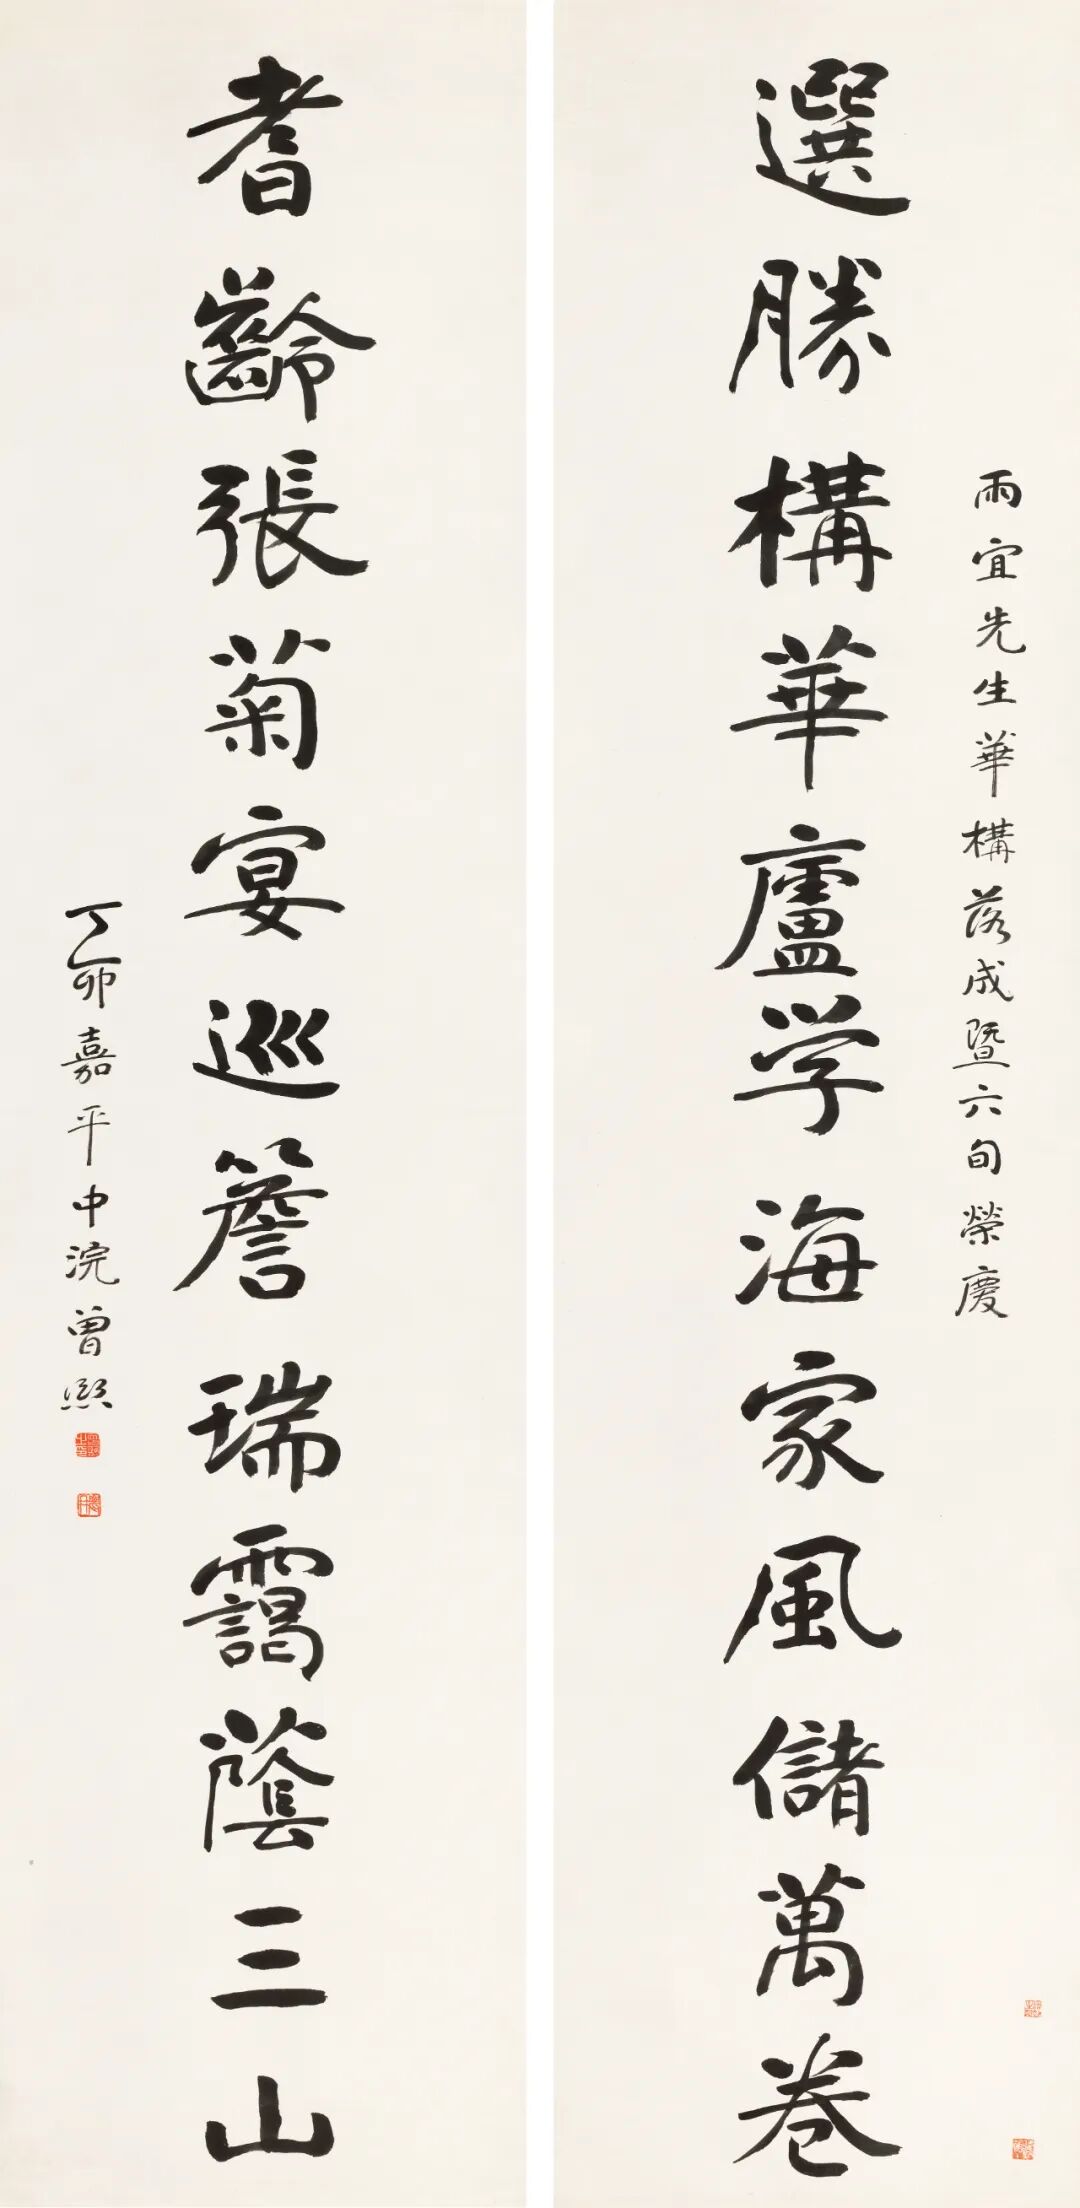 雨宜先生華構落成暨六旬榮慶
選勝構華廬学海家風儲萬卷
耆齡張菊宴巡簷瑞靄蔭三山
丁卯嘉平中浣曾熙